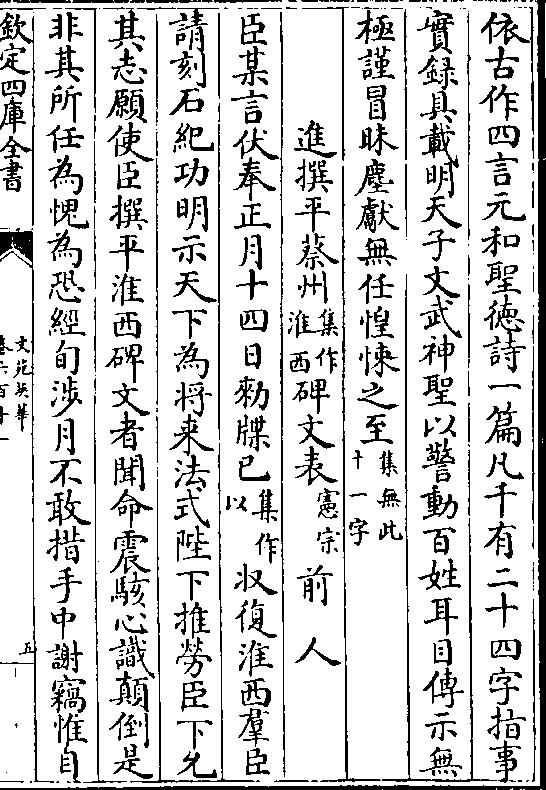 依古作四言元和聖徳詩一篇凡千有二十四字指事
實録具載明天子文武神聖以警動百姓耳目傳示無
極謹冒昧塵獻無任惶悚之至集無此十一字
進撰平蔡州集作淮西碑文表憲宗 前人
臣某言伏奉正月十四日勑牒已集作以収復淮西羣臣
請刻石紀功明示天下為将来法式陛下推勞臣下允
其志願使臣撰平淮西碑文者聞命震駭心識顛倒是
非其所任為愧為恐經旬涉月不敢措手中謝竊惟自
欽定四庫全書
文苑英華
卷六百十一
五